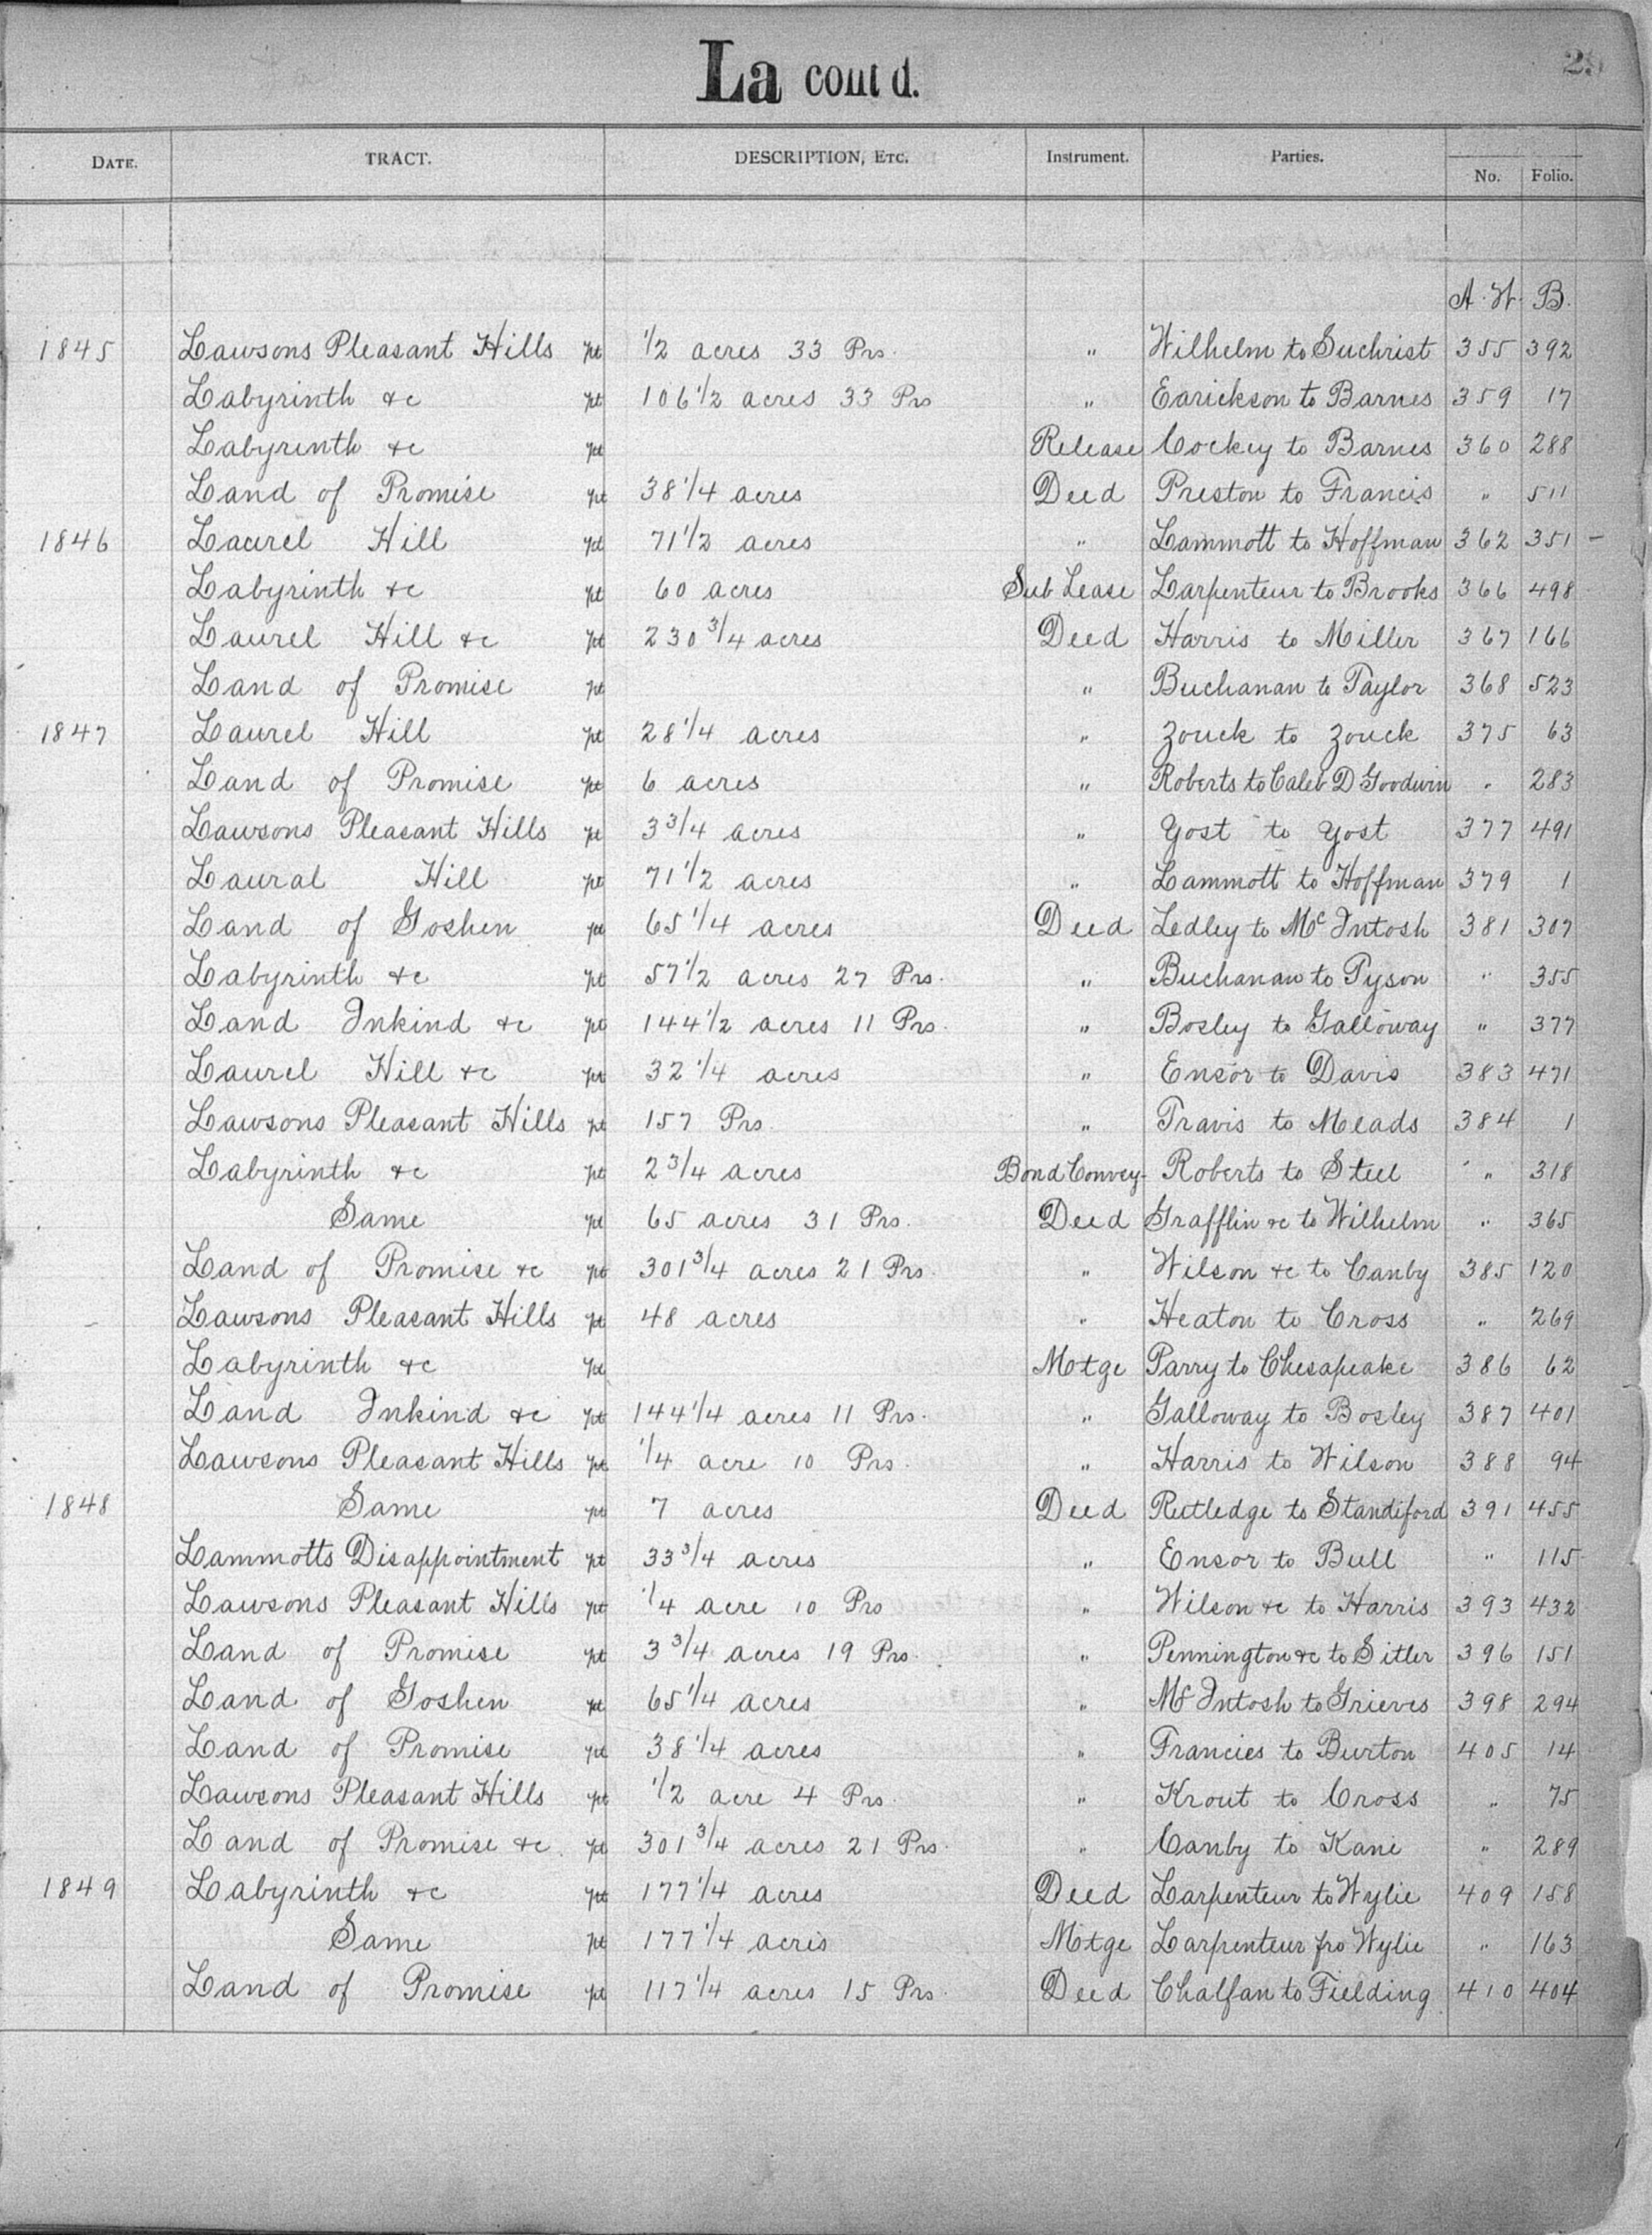 La cont'd.
DATE. TRACT. DESCRIPTION, ETC. Instrument. Parties. No. Folio.
A. W. B.
1845 Lawsons Pleasant Hills pt 1/2 acres 33 Prs. " Wilhelm to Suchrist 355 392
Labyrinth &c pt 106 1/2 acres 33 Prs " Earickson to Barnes 359 17
Labyrinth &c pt Release Cockey to Barnes 360 288
Land of Promise pt 38 1/4 acres Deed Preston to Francis " 511
1846 Laurel Hill pt 71 1/2 acres " Lammott to Hoffman 362 351 -
Labyrinth &c pt 60 acres Sub Lease Larpenteur to Brooks 366 498
Laurel Hill &c pt 230 3/4 acres Deed Harris to Miller 367 166
Land of Promise pt " Buchanan to Taylor 368 523
1847 Laurel Hill pt 28 1/4 acres " Zouck to Zouck 375 63
Land of Promise pt 6 acres " Roberts to Caleb D Goodwin " 283
Lawsons Pleasant Hills pt 3 3/4 acres " Yost to Yost 377 491
Laural Hill pt 71 1/2 acres " Lammott to Hoffman 379 1
Land of Goshen pt 65 1/4 acres Deed Ledley to McIntosh 381 307
Labyrinth &c pt 57 1/2 acres 27 Prs. " Buchanan to Tyson " 355
Land Inkind &c pt 144 1/2 acres 11 Prs. " Bosley to Galloway " 377
Laurel Hill &c pt 32 1/4 acres " Ensor to Davis 383 471
Lawsons Pleasant Hills pt 157 Prs. " Travis to Meads 384 1
Labyrinth &c pt 2 3/4 acres Bond Convey- Roberts to Steel " 318
Same pt 65 acres 31 Prs. Deed Grafflin &c to Wilhelm " 365
Land of Promise &c pt 301 3/4 acres 21 Prs. " Wilson &c to Canby 385 120
Lawsons Pleasant Hills pt 48 acres " Heaton to Cross " 269
Labyrinth &c pt Motge Parry to Chesapeake 386 62
Land Inkind &c pt 144 1/4 acres 11 Prs. " Galloway to Bosley 387 401
Lawsons Pleasant Hills pt 1/4 acre 10 Prs. " Harris to Wilson 388 94
1848 Same pt 7 acres Deed Rutledge to Standiford 391 455
Lammotts Disappointment pt 33 3/4 acres " Ensor to Bull " 115
Lawsons Pleasant Hills pt 1/4 acre 10 Prs " Wilson &c to Harris 393 432
Land of Promise pt 3 3/4 acres 19 Prs. " Pennington &c to Sitler 396 151
Land of Goshen pt 65 1/4 acres " McIntosh to Grieves 398 294
Land of Promise pt 38 1/4 acres " Francies to Burton 405 14
Lawsons Pleasant Hills pt 1/2 acre 4 Prs. " Krout to Cross " 75
Land of Promise &c. pt 301 3/4 acres 21 Prs. " Canby to Kane " 289
1849 Labyrinth &c pt 177 1/4 acres Deed Larpenteur to Wylie 409 158
Same pt 177 1/4 acres Motge Larpenteur fro Wylie " 163
Land of Promise pt 117 1/4 acres 15 Prs. Deed Chalfan to Fielding 410 404